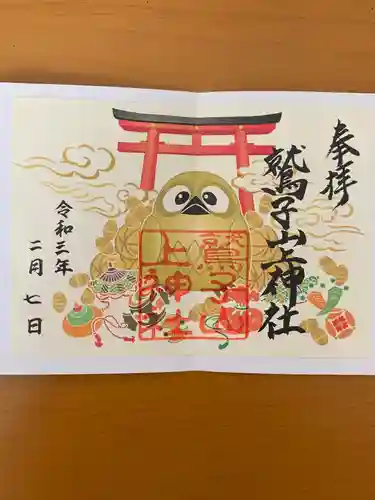 奉拝
鷲子山上神社
鷲子山
上神社
令和三年
二月七日